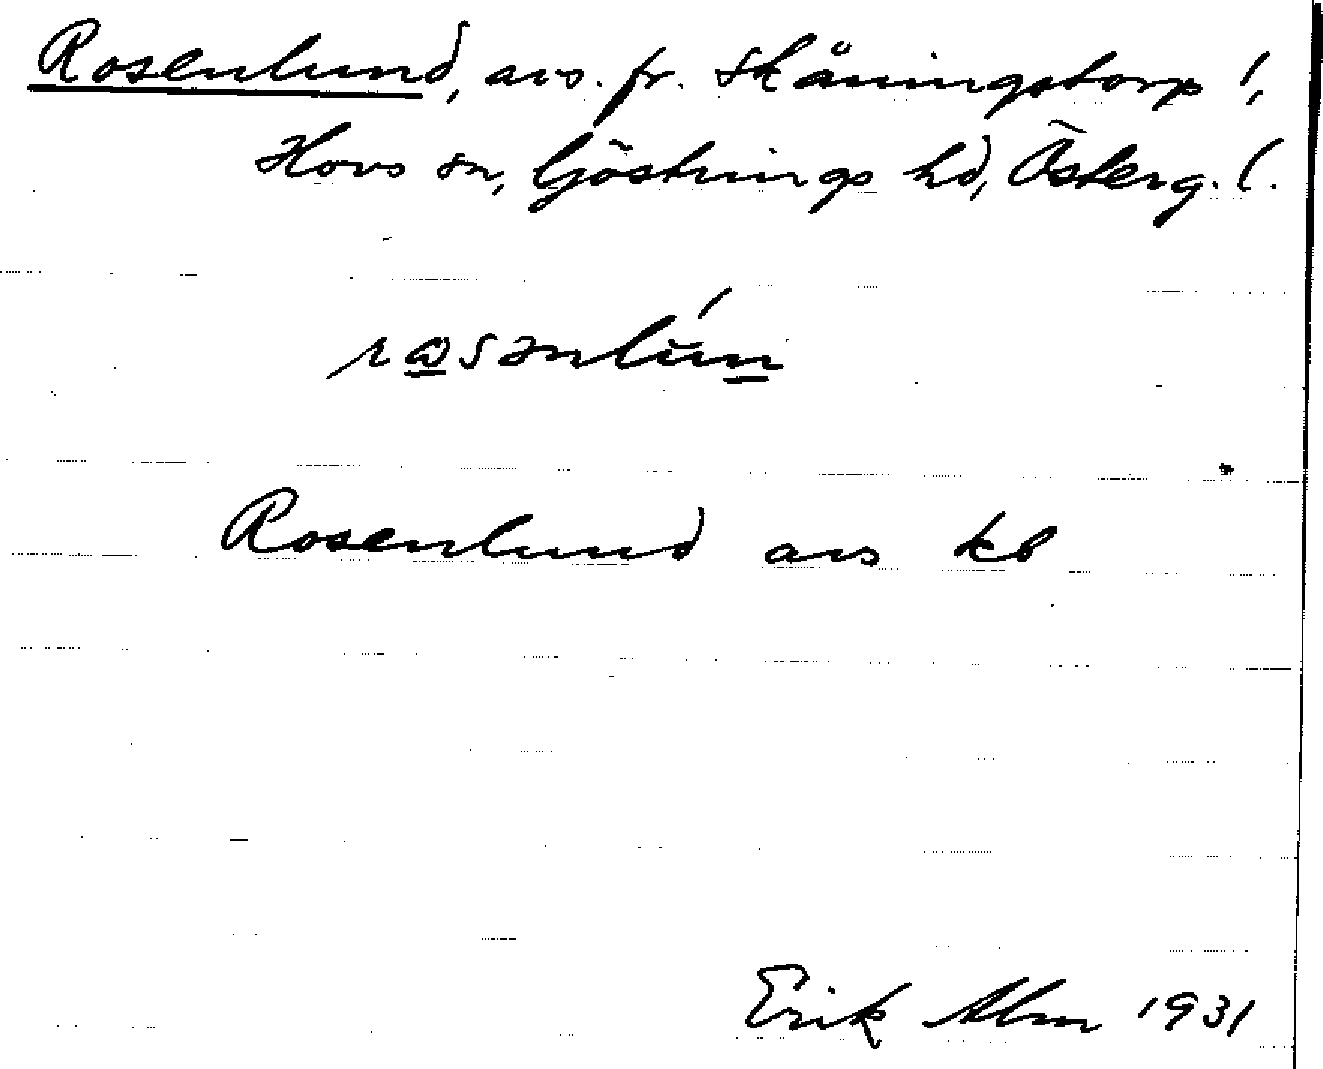 Rosenlund, avs. fr. Skåningstorp 1,
Hovs sn, Göstrings hd, Österg. l.
Rosenlund avs kb
Erik Alm 1931